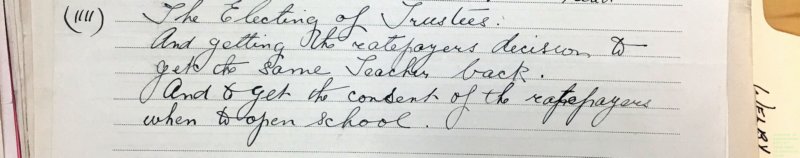 (1111) The Electing of Trustees.
And getting the ratepayers decision to
get the same Teacher back.
And to get the consent of the ratepayers
when to open school.